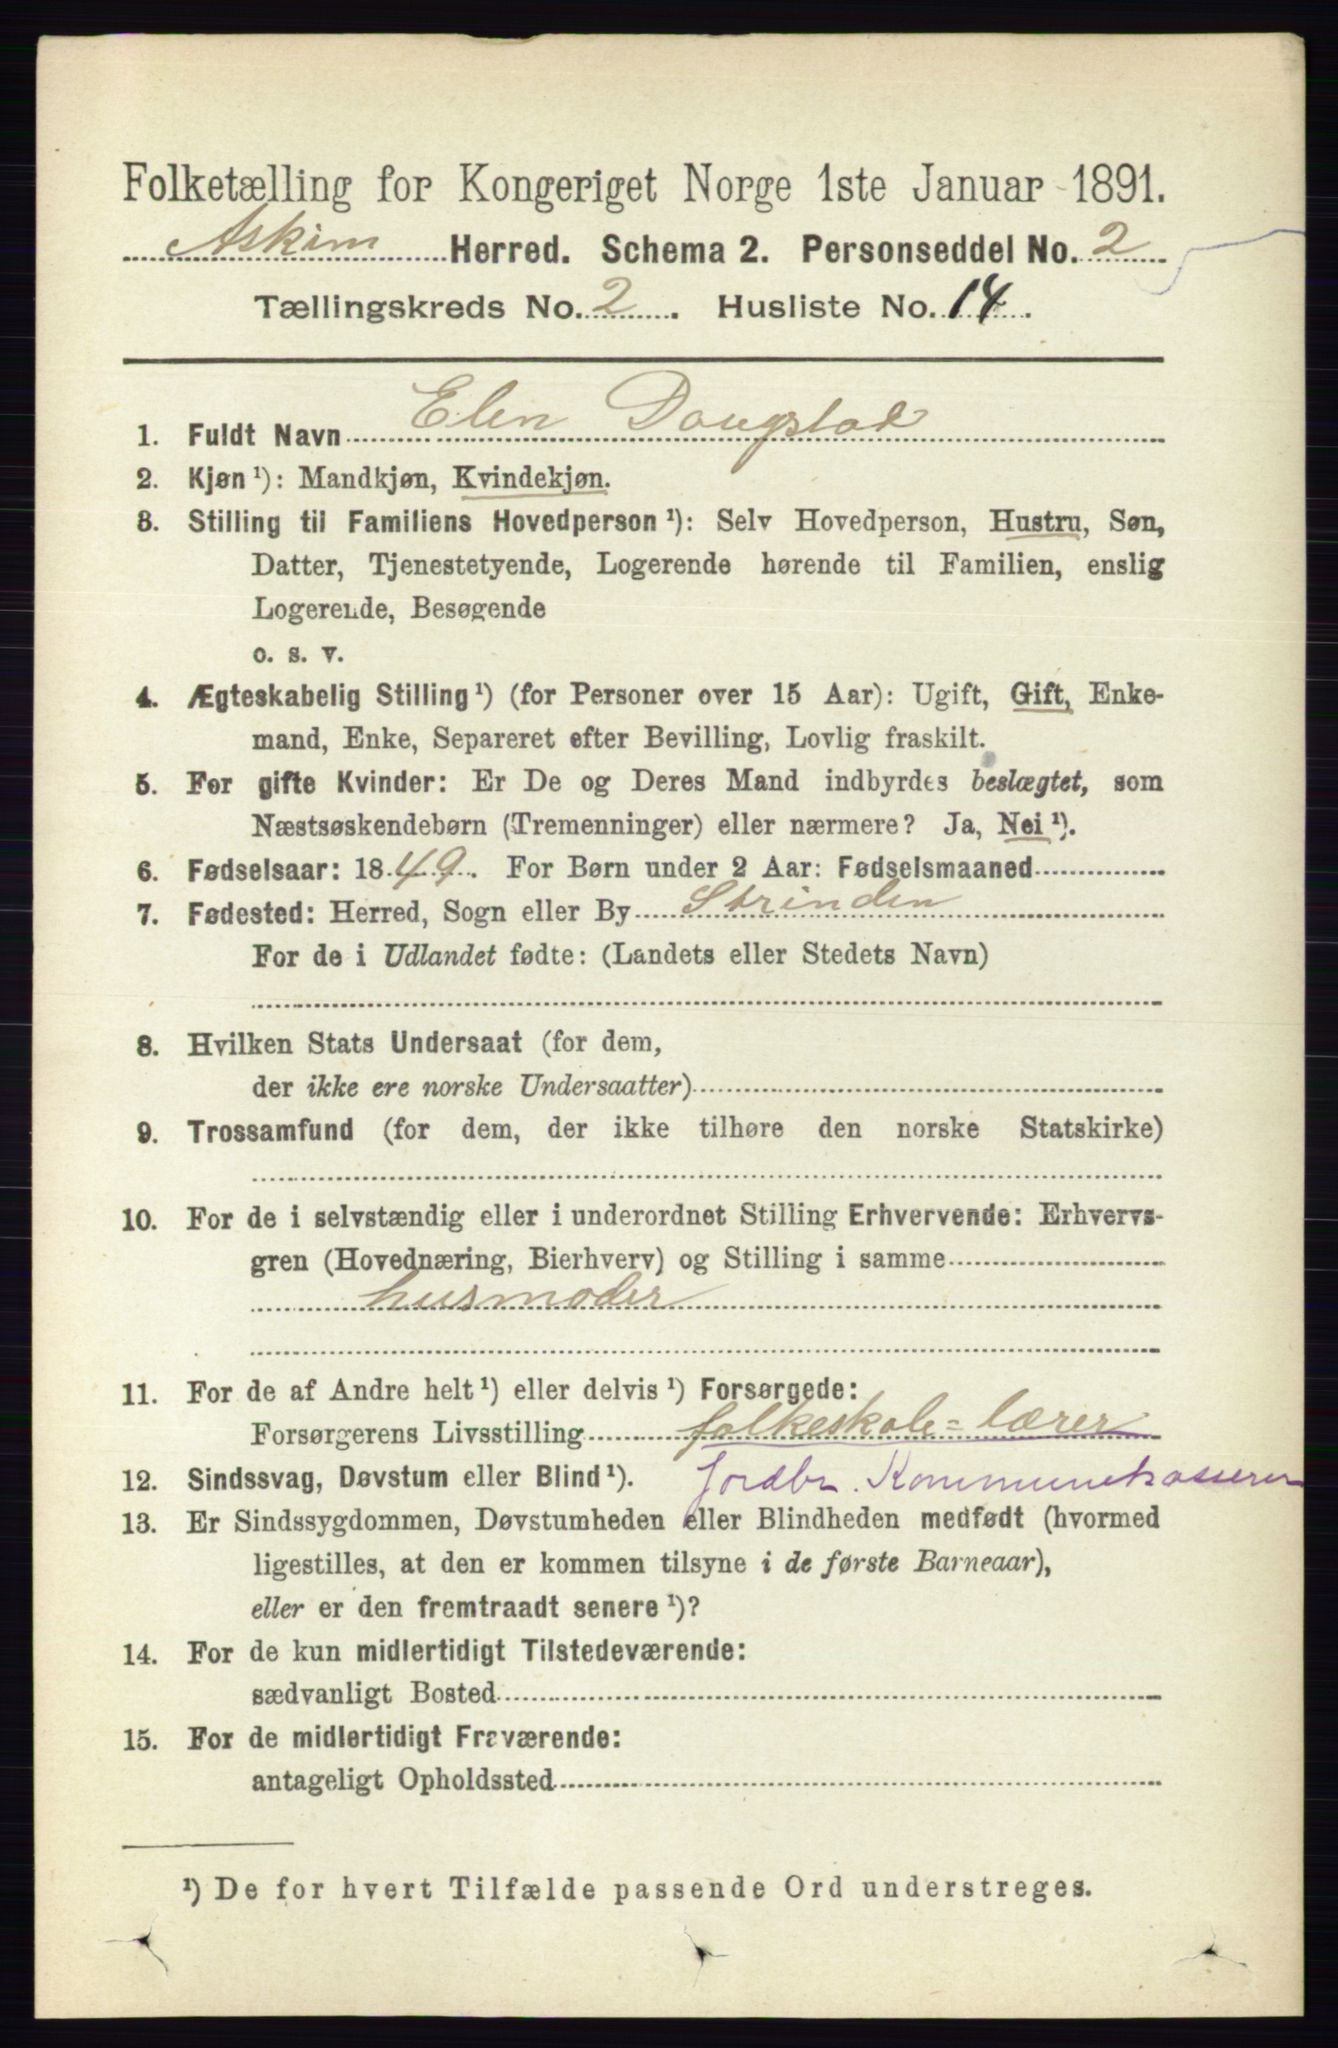 Folketælling for Kongeriget Norge 1ste Januar 1891.
Askim Herred. Schema 2. Personseddel No. 2
Tællingskreds No. 2. Husliste No. 14.
1. Fuldt Navn Elen Dougstad
2. Kjøn ¹): Mandkjøn, Kvindekjøn.
3. Stilling til Familiens Hovedperson ¹): Selv Hovedperson, Hustru, Søn,
Datter, Tjenestetyende, Logerende hørende til Familien, enslig
Logerende, Besøgende
o. s. v.
4. Ægteskabelig Stilling ¹) (for Personer over 15 Aar): Ugift, Gift, Enke-
mand, Enke, Separeret efter Bevilling, Lovlig fraskilt.
5. For gifte Kvinder: Er De og Deres Mand indbyrdes beslægtet, som
Næstsøskendebørn (Tremenninger) eller nærmere? Ja, Nei ¹).
6. Fødselsaar: 1849. For Børn under 2 Aar: Fødselsmaaned
7. Fødested: Herred, Sogn eller By Strinden
For de i Udlandet fødte: (Landets eller Stedets Navn)
8. Hvilken Stats Undersaat (for dem,
der ikke ere norske Undersaatter)
9. Trossamfund (for dem, der ikke tilhøre den norske Statskirke)
10. For de i selvstændig eller i underordnet Stilling Erhvervende: Erhvervs-
gren (Hovednæring, Bierhverv) og Stilling i samme
husmoder
11. For de af Andre helt ¹) eller delvis ¹) Forsørgede:
Forsørgerens Livsstilling folkeskole=lærer
12. Sindssvag, Døvstum eller Blind ¹). Jordbr. Kommunekasserer
13. Er Sindssygdommen, Døvstumheden eller Blindheden medfødt (hvormed
ligestilles, at den er kommen tilsyne i de første Barneaar),
eller er den fremtraadt senere ¹)?
14. For de kun midlertidigt Tilstedeværende:
sædvanligt Bosted
15. For de midlertidigt Fraværende:
antageligt Opholdssted
¹) De for hvert Tilfælde passende Ord understreges.